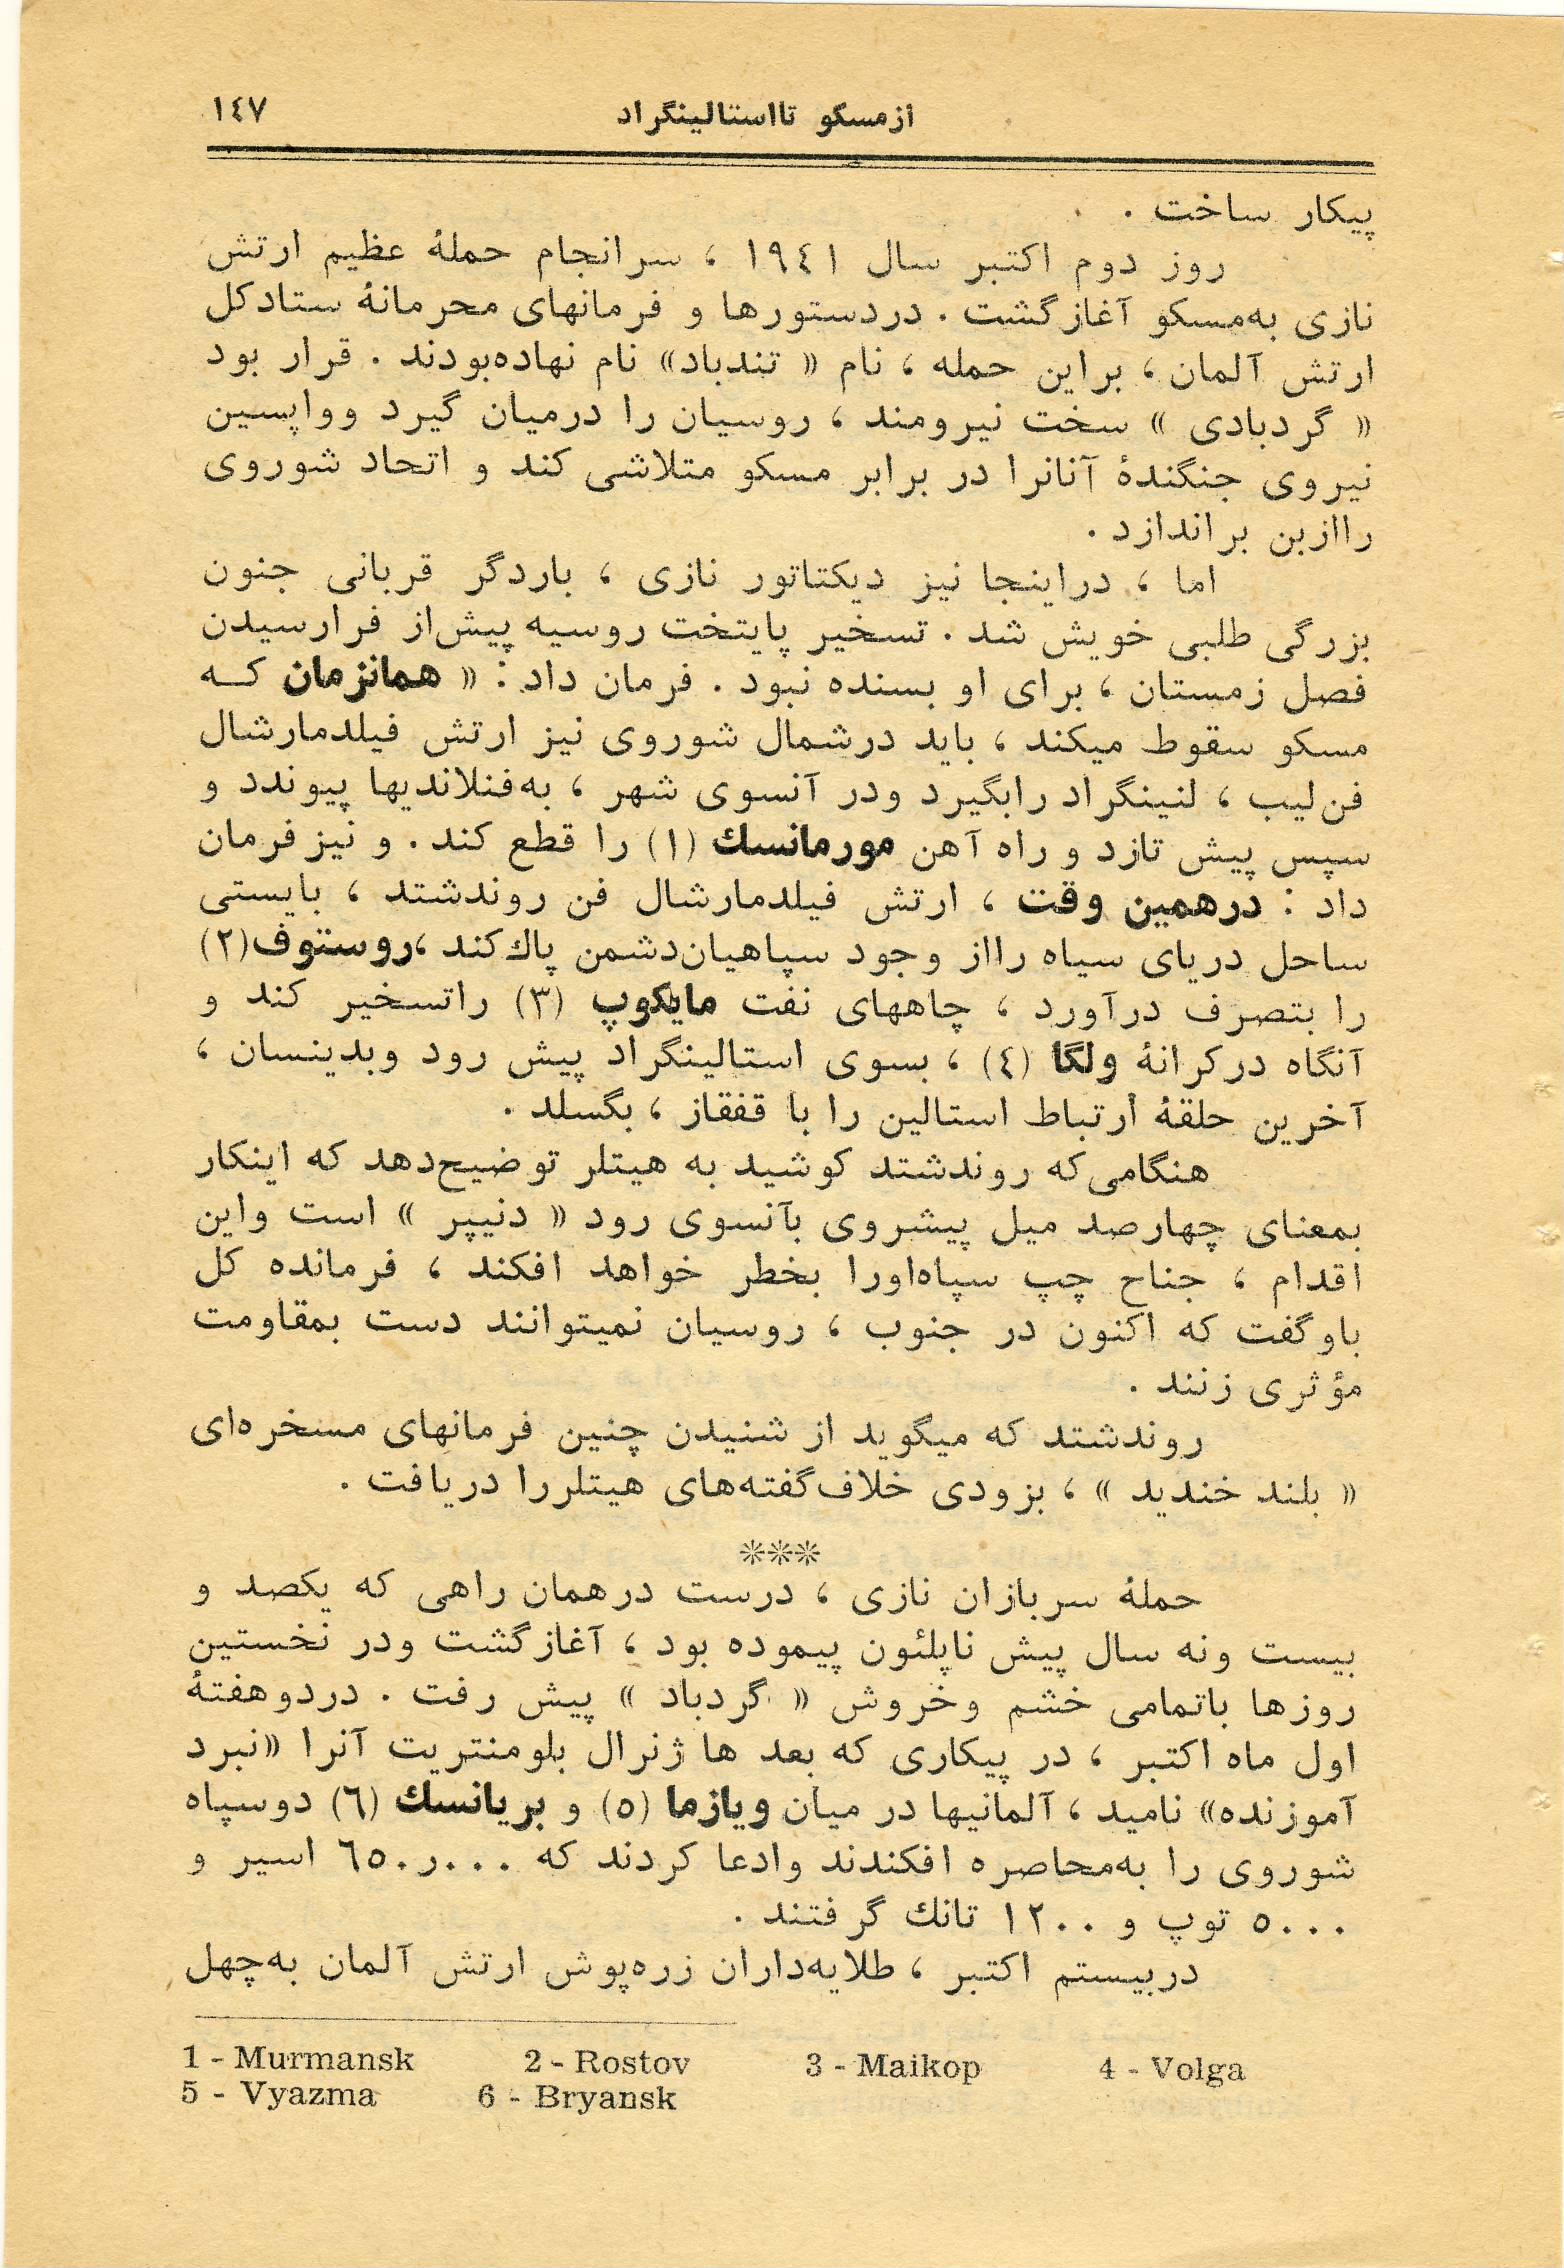 ازمسکو تااستالینگراد ١٤٧
پیکار ساخت .
روز دوم اکتبر سال ١٩٤١ ، سرانجام حملهٔ عظیم ارتش
نازی به‌مسکو آغازگشت . دردستورها و فرمانهای محرمانهٔ ستادکل
ارتش آلمان ، براین حمله ، نام « تندباد» نام نهاده‌بودند . قرار بود
« گردبادی » سخت نیرومند ، روسیان را درمیان گیرد وواپسین
نیروی جنگندهٔ آنانرا در برابر مسکو متلاشی کند و اتحاد شوروی
راازبن براندازد .
اما ، دراینجا نیز دیکتاتور نازی ، باردگر قربانی جنون
بزرگی طلبی خویش شد . تسخیر پایتخت روسیه پیش‌از فرارسیدن
فصل زمستان ، برای او بسنده نبود . فرمان داد : « همانزمان کـه
مسکو سقوط میکند ، باید درشمال شوروی نیز ارتش فیلدمارشال
فن‌لیب ، لنینگراد رابگیرد ودر آنسوی شهر ، به‌فنلاندیها پیوندد و
سپس پیش تازد و راه آهن مورمانسك (١) را قطع کند . و نیز فرمان
داد : درهمین وقت ، ارتش فیلدمارشال فن روندشتد ، بایستی
ساحل دریای سیاه رااز وجود سپاهیان‌دشمن پاك‌کند ،روستوف(٢)
را بتصرف درآورد ، چاههای نفت مایکوپ (٣) راتسخیر کند و
آنگاه درکرانهٔ ولگا (٤) ، بسوی استالینگراد پیش رود وبدینسان ،
آخرین حلقهٔ ارتباط استالین را با قفقاز ، بگسلد .
هنگامی‌که روندشتد کوشید به هیتلر توضیح‌دهد که اینکار
بمعنای چهارصد میل پیشروی بآنسوی رود « دنیپر » است واین
اقدام ، جناح چپ سپاه‌اورا بخطر خواهد افکند ، فرمانده کل
باوگفت که اکنون در جنوب ، روسیان نمیتوانند دست بمقاومت
مؤثری زنند .
روندشتد که میگوید از شنیدن چنین فرمانهای مسخره‌ای
« بلند خندید » ، بزودی خلاف‌گفته‌های هیتلررا دریافت .
***
حملهٔ سربازان نازی ، درست درهمان راهی که یکصد و
بیست ونه سال پیش ناپلئون پیموده بود ، آغازگشت ودر نخستین
روزها باتمامی خشم وخروش « گردباد » پیش رفت . دردوهفتهٔ
اول ماه اکتبر ، در پیکاری که بعد ها ژنرال بلومنتریت آنرا «نبرد
آموزنده» نامید ، آلمانیها در میان ویازما (٥) و بریانسك (٦) دوسپاه
شوروی را به‌محاصره افکندند وادعا کردند که ٦٥٠ر٠٠٠ اسیر و
٥٠٠٠ توپ و ١٢٠٠ تانك گرفتند .
دربیستم اکتبر ، طلایه‌داران زره‌پوش ارتش آلمان به‌چهل
1 - Murmansk 2 - Rostov 3 - Maikop 4 - Volga
5 - Vyazma 6 - Bryansk